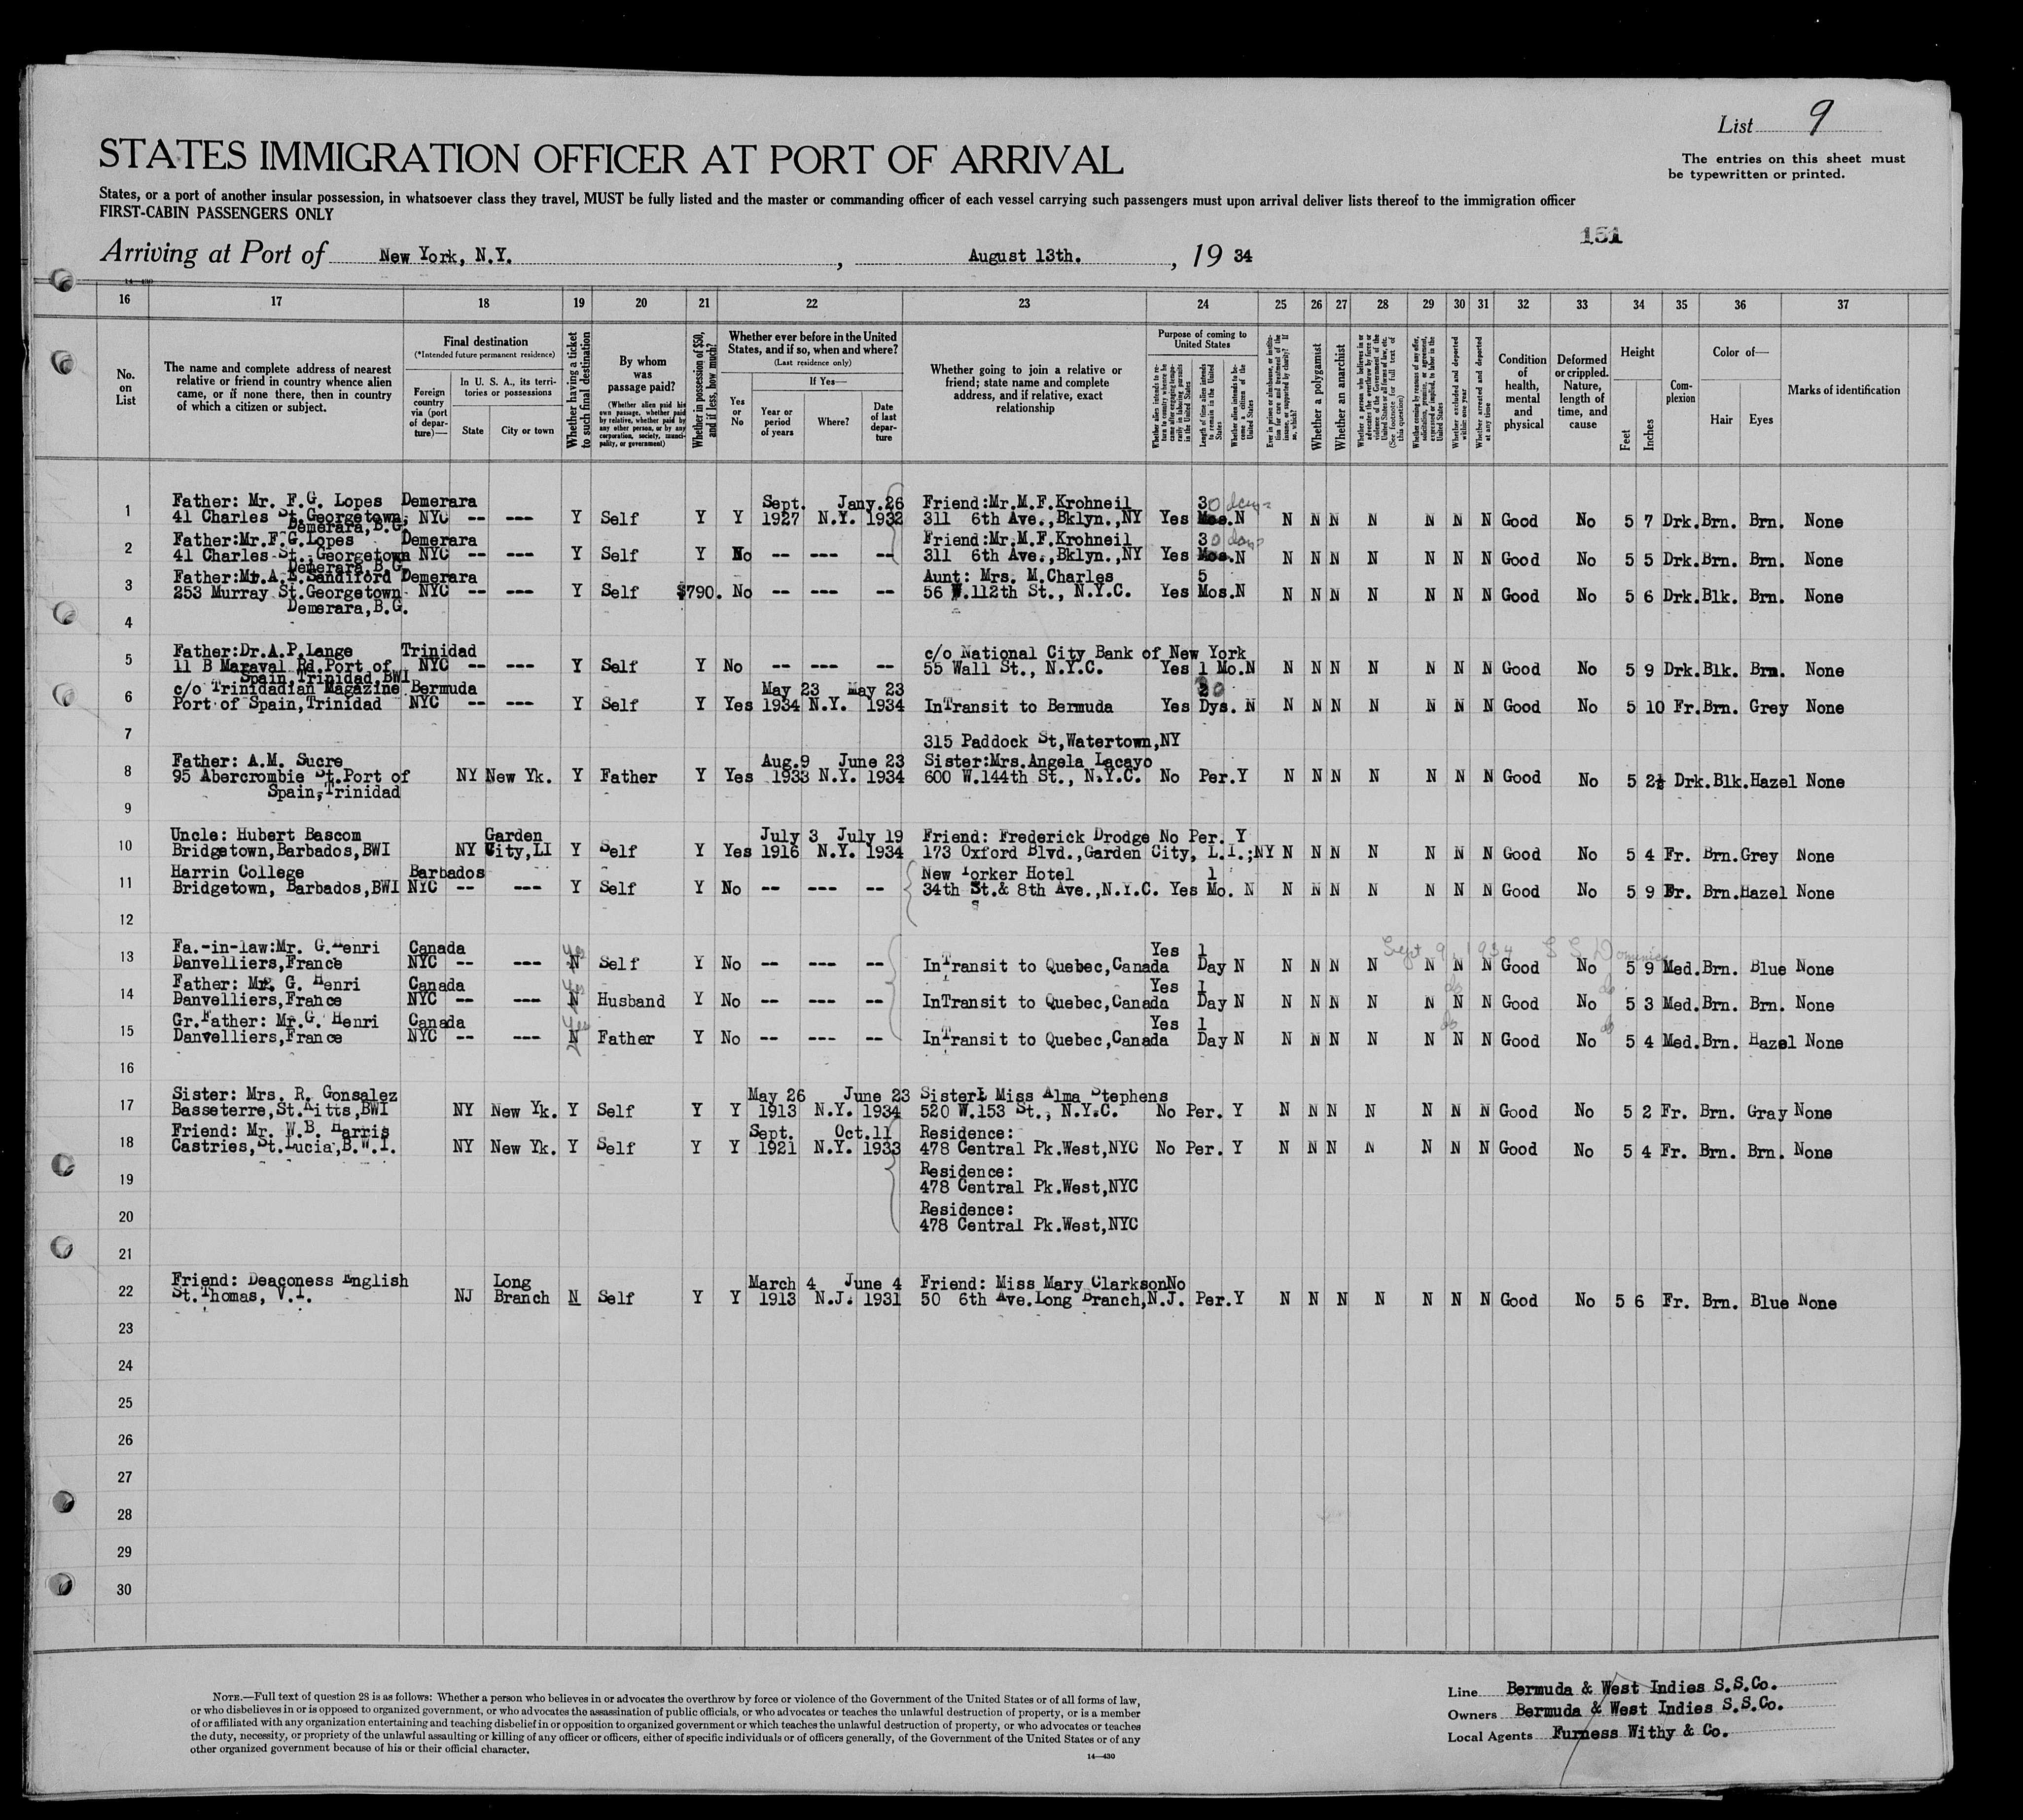 List 9
STATES IMMIGRATION OFFICER AT PORT OF ARRIVAL
The entries on this sheet must
be typewritten or printed.
States, or a port of another insular possession, in whatsoever class they travel, MUST be fully listed and the master or commanding officer of each vessel carrying such passengers must upon arrival deliver lists thereof to the immigration officer
FIRST-CABIN PASSENGERS ONLY
151
Arriving at Port of New York, N.Y. , August 13th. , 19 34
14—430
16 17 18 19 20 21 22 23 24 25 26 27 28 29 30 31 32 33 34 35 36 37
No.
on
List
The name and complete address of nearest
relative or friend in country whence alien
came, or if none there, then in country
of which a citizen or subject.
Final destination
(*Intended future permanent residence)
Foreign
country
via (port
of depar-
ture)—
In U. S. A., its terri-
tories or possessions
State City or town
Whether having a ticket
to such final destination
By whom
was
passage paid?
(Whether alien paid his
own passage, whether paid
by relative, whether paid by
any other person, or by any
corporation, society, munici-
pality, or government)
Whether in possession of $50,
and if less, how much?
Whether ever before in the United
States, and if so, when and where?
(Last residence only)
Yes
or
No
If Yes—
Year or
period
of years
Where?
Date
of last
depar-
ture
Whether going to join a relative or
friend; state name and complete
address, and if relative, exact
relationship
Purpose of coming to
United States
Whether alien intends to re-
turn to country whence he
came after engaging tempo-
rarily in laboring pursuits
in the United States
Length of time alien intends
to remain in the United
States
Whether alien intends to be-
come a citizen of the
United States
Ever in prison or almshouse, or institu-
tion for care and treatment of the
insane, or supported by charity? If
so, which?
Whether a polygamist
Whether an anarchist
Whether a person who believes in or
advocates the overthrow by force or
violence of the Government of the
United States or all forms of law, etc.
(See footnote for full text of
this question)
Whether coming by reason of any offer,
solicitation, promise, or agreement,
expressed or implied, to labor in the
United States
Whether excluded and deported
within one year
Whether arrested and deported
at any time
Condition
of
health,
mental
and
physical
Deformed
or crippled.
Nature,
length of
time, and
cause
Height
Feet Inches
Com-
plexion
Color of—
Hair Eyes
Marks of identification
Father: Mr. F.G. Lopes Demerara Sept. Jany.26 Friend:Mr.M.F.Krohneil 30 days
1 41 Charles St.Georgetown, NYC -- --- Y Self Y Y 1927 N.Y. 1932 311 6th Ave.,Bklyn.,NY Yes Mos.N N N N N N N N Good No 5 7 Drk.Brn. Brn. None
Demerara,B.G.
Father:Mr.F.G.Lopes Demerara Friend:Mr.M.F.Krohneil 30 days
2 41 Charles St. Georgetown NYC -- --- Y Self Y No -- --- -- 311 6th Ave.,Bklyn.,NY Yes Mos.N N N N N N N N Good No 5 5 Drk.Brn. Brn. None
Demerara,B.G.
Father:Mr.A. Sandiford Demerara Aunt: Mrs. M.Charles 5
3 253 Murray St.Georgetown NYC -- --- Y Self $790. No -- --- -- 56 W.112th St., N.Y.C. Yes Mos.N N N N N N N N Good No 5 6 Drk.Blk. Brn. None
Demerara,B.G.
4
Father:Dr.A.P.Lange Trinidad c/o National City Bank of New York
5 11 B Maraval Rd.Port of NYC -- --- Y Self Y No -- --- -- 55 Wall St., N.Y.C. Yes 1 Mo.N N N N N N N N Good No 5 9 Drk.Blk. Brn. None
Spain,Trinidad,BWI
c/o Trinidadian Magazine Bermuda May 23 May 23 20
6 Port of Spain,Trinidad NYC -- --- Y Self Y Yes 1934 N.Y. 1934 InTransit to Bermuda Yes Dys. N N N N N N N N Good No 5 10 Fr.Brn. Grey None
7 315 Paddock St,Watertown,NY
Father: A.M. Sucre Aug.9 June 23 Sister:Mrs.Angela Lacayo
8 95 Abercrombie St.Port of NY New Yk. Y Father Y Yes 1933 N.Y. 1934 600 W.144th St., N.Y.C. No Per.Y N N N N N N N Good No 5 2½ Drk.Blk.Hazel None
Spain,Trinidad
9
Uncle: Hubert Bascom Garden July 3 July 19 Friend: Frederick Drodge No Per. Y
10 Bridgetown,Barbados,BWI NY City,LI Y Self Y Yes 1916 N.Y. 1934 173 Oxford Blvd.,Garden City, L.I.;NY N N N N N N N Good No 5 4 Fr. Brn.Grey None
Harrin College Barbados New Yorker Hotel 1
11 Bridgetown, Barbados,BWI NYC -- --- Y Self Y No -- --- -- 34th St.& 8th Ave.,N.Y.C. Yes Mo. N N N N N N N N Good No 5 9 Fr. Brn.Hazel None
12
Fa.-in-law:Mr. G.Henri Canada Yes Yes 1 Sept 9, 1934 S S Dominica
13 Danvelliers,France NYC -- --- N Self Y No -- --- -- InTransit to Quebec,Canada Day N N N N N N N N Good No 5 9 Med.Brn. Blue None
Father: Mr. G. Henri Canada Yes Yes 1 do do
14 Danvelliers,France NYC -- --- N Husband Y No -- --- -- InTransit to Quebec,Canada Day N N N N N N N N Good No 5 3 Med.Brn. Brn. None
Gr.Father: Mr.G. Henri Canada Yes Yes 1 do do
15 Danvelliers,France NYC -- --- N Father Y No -- --- -- InTransit to Quebec,Canada Day N N N N N N N N Good No 5 4 Med.Brn. Hazel None
16
Sister: Mrs. R. Gonsalez May 26 June 23 Sister: Miss Alma Stephens
17 Basseterre,St.Kitts,BWI NY New Yk. Y Self Y Y 1913 N.Y. 1934 520 W.153 St., N.Y.C. No Per. Y N N N N N N N Good No 5 2 Fr. Brn. Gray None
Friend: Mr. W.B. Harris Sept. Oct.11 Residence:
18 Castries,St.Lucia,B.W.I. NY New Yk. Y Self Y Y 1921 N.Y. 1933 478 Central Pk.West,NYC No Per. Y N N N N N N N Good No 5 4 Fr. Brn. Brn. None
Residence:
19 478 Central Pk.West,NYC
Residence:
20 478 Central Pk.West,NYC
21
Friend: Deaconess English Long March 4 June 4 Friend: Miss Mary ClarksonNo
22 St.Thomas, V.I. NJ Branch N Self Y Y 1913 N.J. 1931 50 6th Ave.Long Branch,N.J. Per.Y N N N N N N N Good No 5 6 Fr. Brn. Blue None
23
24
25
26
27
28
29
30
NOTE.—Full text of question 28 is as follows: Whether a person who believes in or advocates the overthrow by force or violence of the Government of the United States or of all forms of law,
or who disbelieves in or is opposed to organized government, or who advocates the assassination of public officials, or who advocates or teaches the unlawful destruction of property, or is a member
of or affiliated with any organization entertaining and teaching disbelief in or opposition to organized government or which teaches the unlawful destruction of property, or who advocates or teaches
the duty, necessity, or propriety of the unlawful assaulting or killing of any officer or officers, either of specific individuals or of officers generally, of the Government of the United States or of any
other organized government because of his or their official character.
14—430
Line Bermuda & West Indies S.S.Co.
Owners Bermuda & West Indies S.S.Co.
Local Agents Furness Withy & Co.